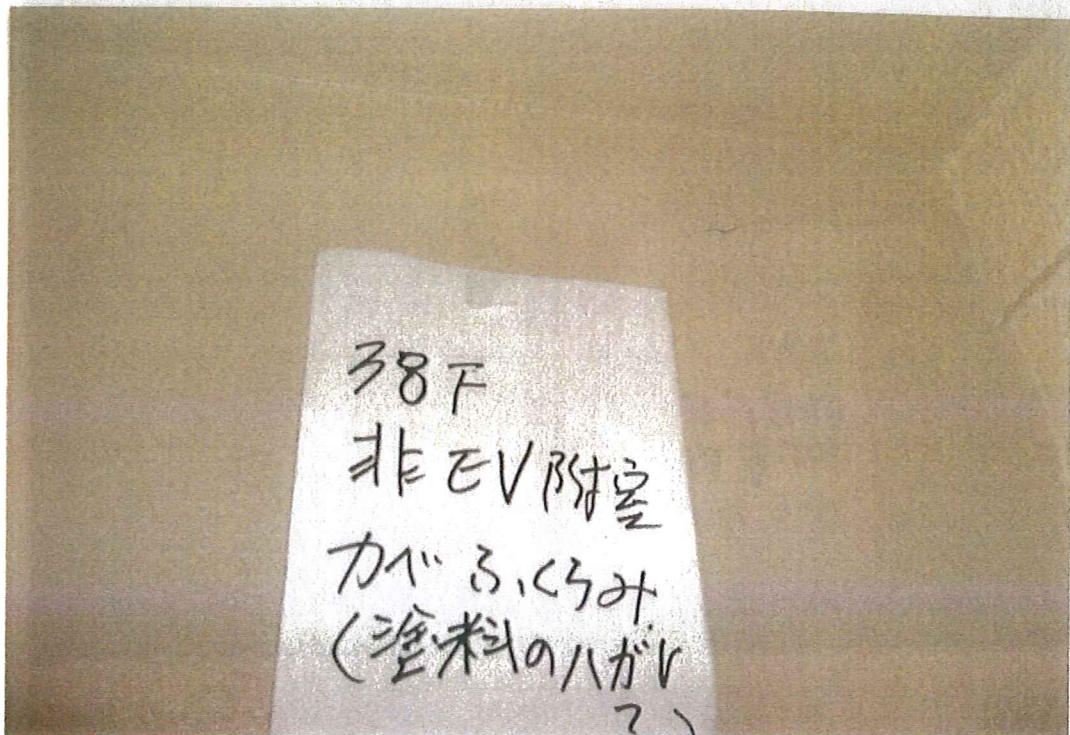 38F
非EV附室
カベふくらみ
(塗料のハガレ